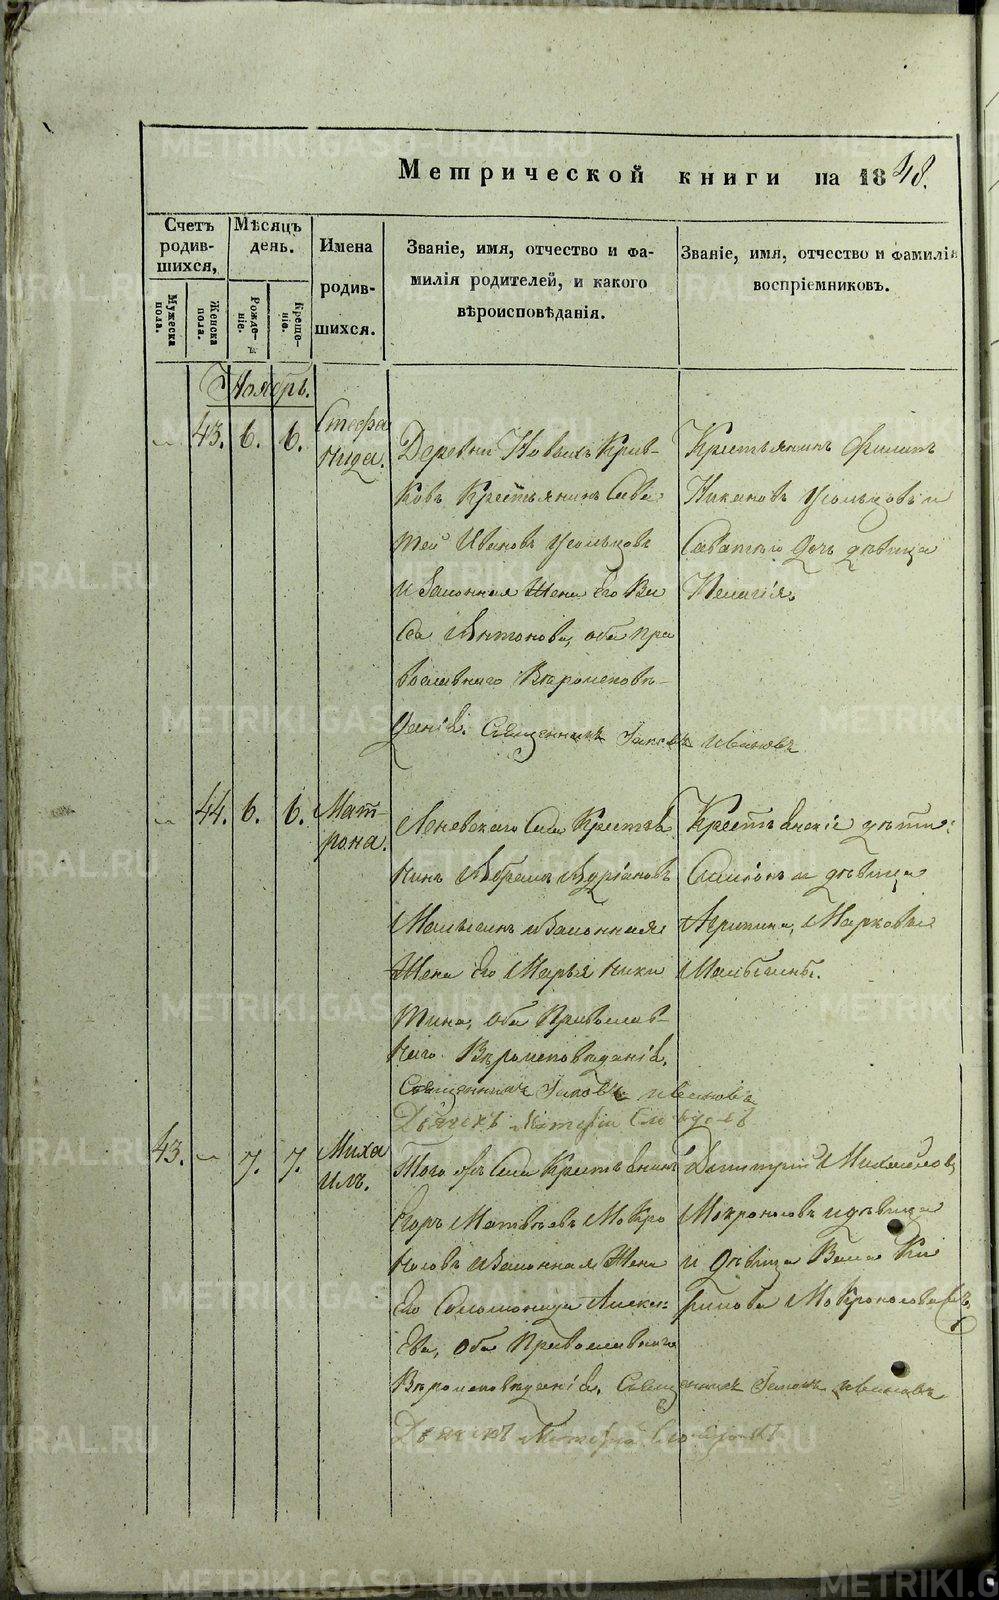 Метрической книги на 1848.
Счетъ родившихся,
Мѣсяцъ день.
Имена родившихся.
Званіе, имя, отчество и фамилія родителей, и какого вѣроисповѣданія.
Званіе, имя, отчество и фамилія воспріемниковъ.
Мужеска пола.
Женска пола.
Рожденіе.
Крещеніе.
Ноябрь.
43. 6. 6. Стефа
нида.
Деревни Новыхъ Крив-
ковъ Крестьянинъ Сава
тей Ивановъ Усольцовъ
и Законная Жена Его Ва
са Антонова, оба пра
вославнаго Вѣроисповѣ-
данія. Священникъ Іаковъ Ивановъ
Крестьянинъ Филипъ
Никоновъ Усольцовъ и
Саватѣя дочь дѣвица
Пелагія.
44. 6. 6. Мат-
рона.
Леневскаго Села Крестья
нинъ Абрамъ Адріановъ
Малыгинъ и Законная
Жена Его Марья Ники
тина, оба Православ-
наго Вѣроисповѣданія,
Священникъ Іаковъ Ивановъ
Дьячекъ
Крестьянскіе дѣти:
Симіонъ и дѣвица
Агрипина, Марковы
Малыгины.
43. 7. 7. Миха
илъ.
Того жъ Села Крестьянинъ
Егоръ Матвѣевъ Мокро
носовъ и Законная Жена
Его Соломонида Алексѣ
ева, оба Православнаго
Вѣроисповѣданія, Священникъ Іаковъ Ивановъ
Дьячекъ
Димитрій Михайловъ
Мокроносовъ и дѣвица
и дѣвица Васа Ки
рилова Мокроносова
METRIKI.GASO-URAL.RU